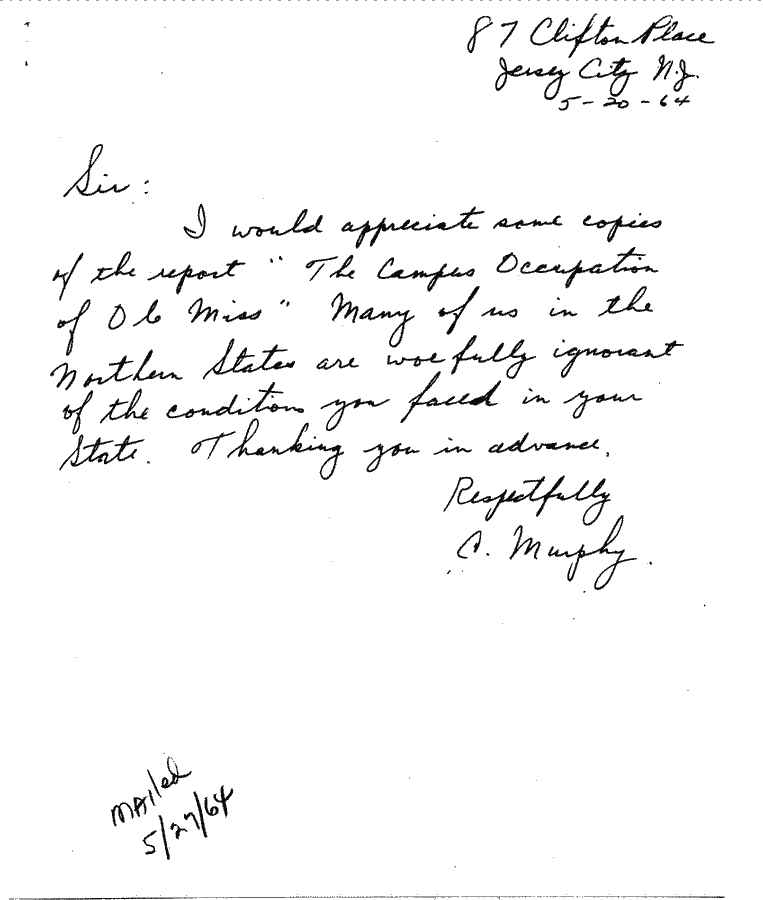 87 Clifton Place
Jersey City N.J.
5-20-64
Sir:
I would appreciate some copies
of the report " The Campus Occupation
of Ole Miss" Many of us in the
Northern States are woefully ignorant
of the conditions you faced in your
State. Thanking you in advance.
Respectfully
C. Murphy.
MAiled
5/27/64